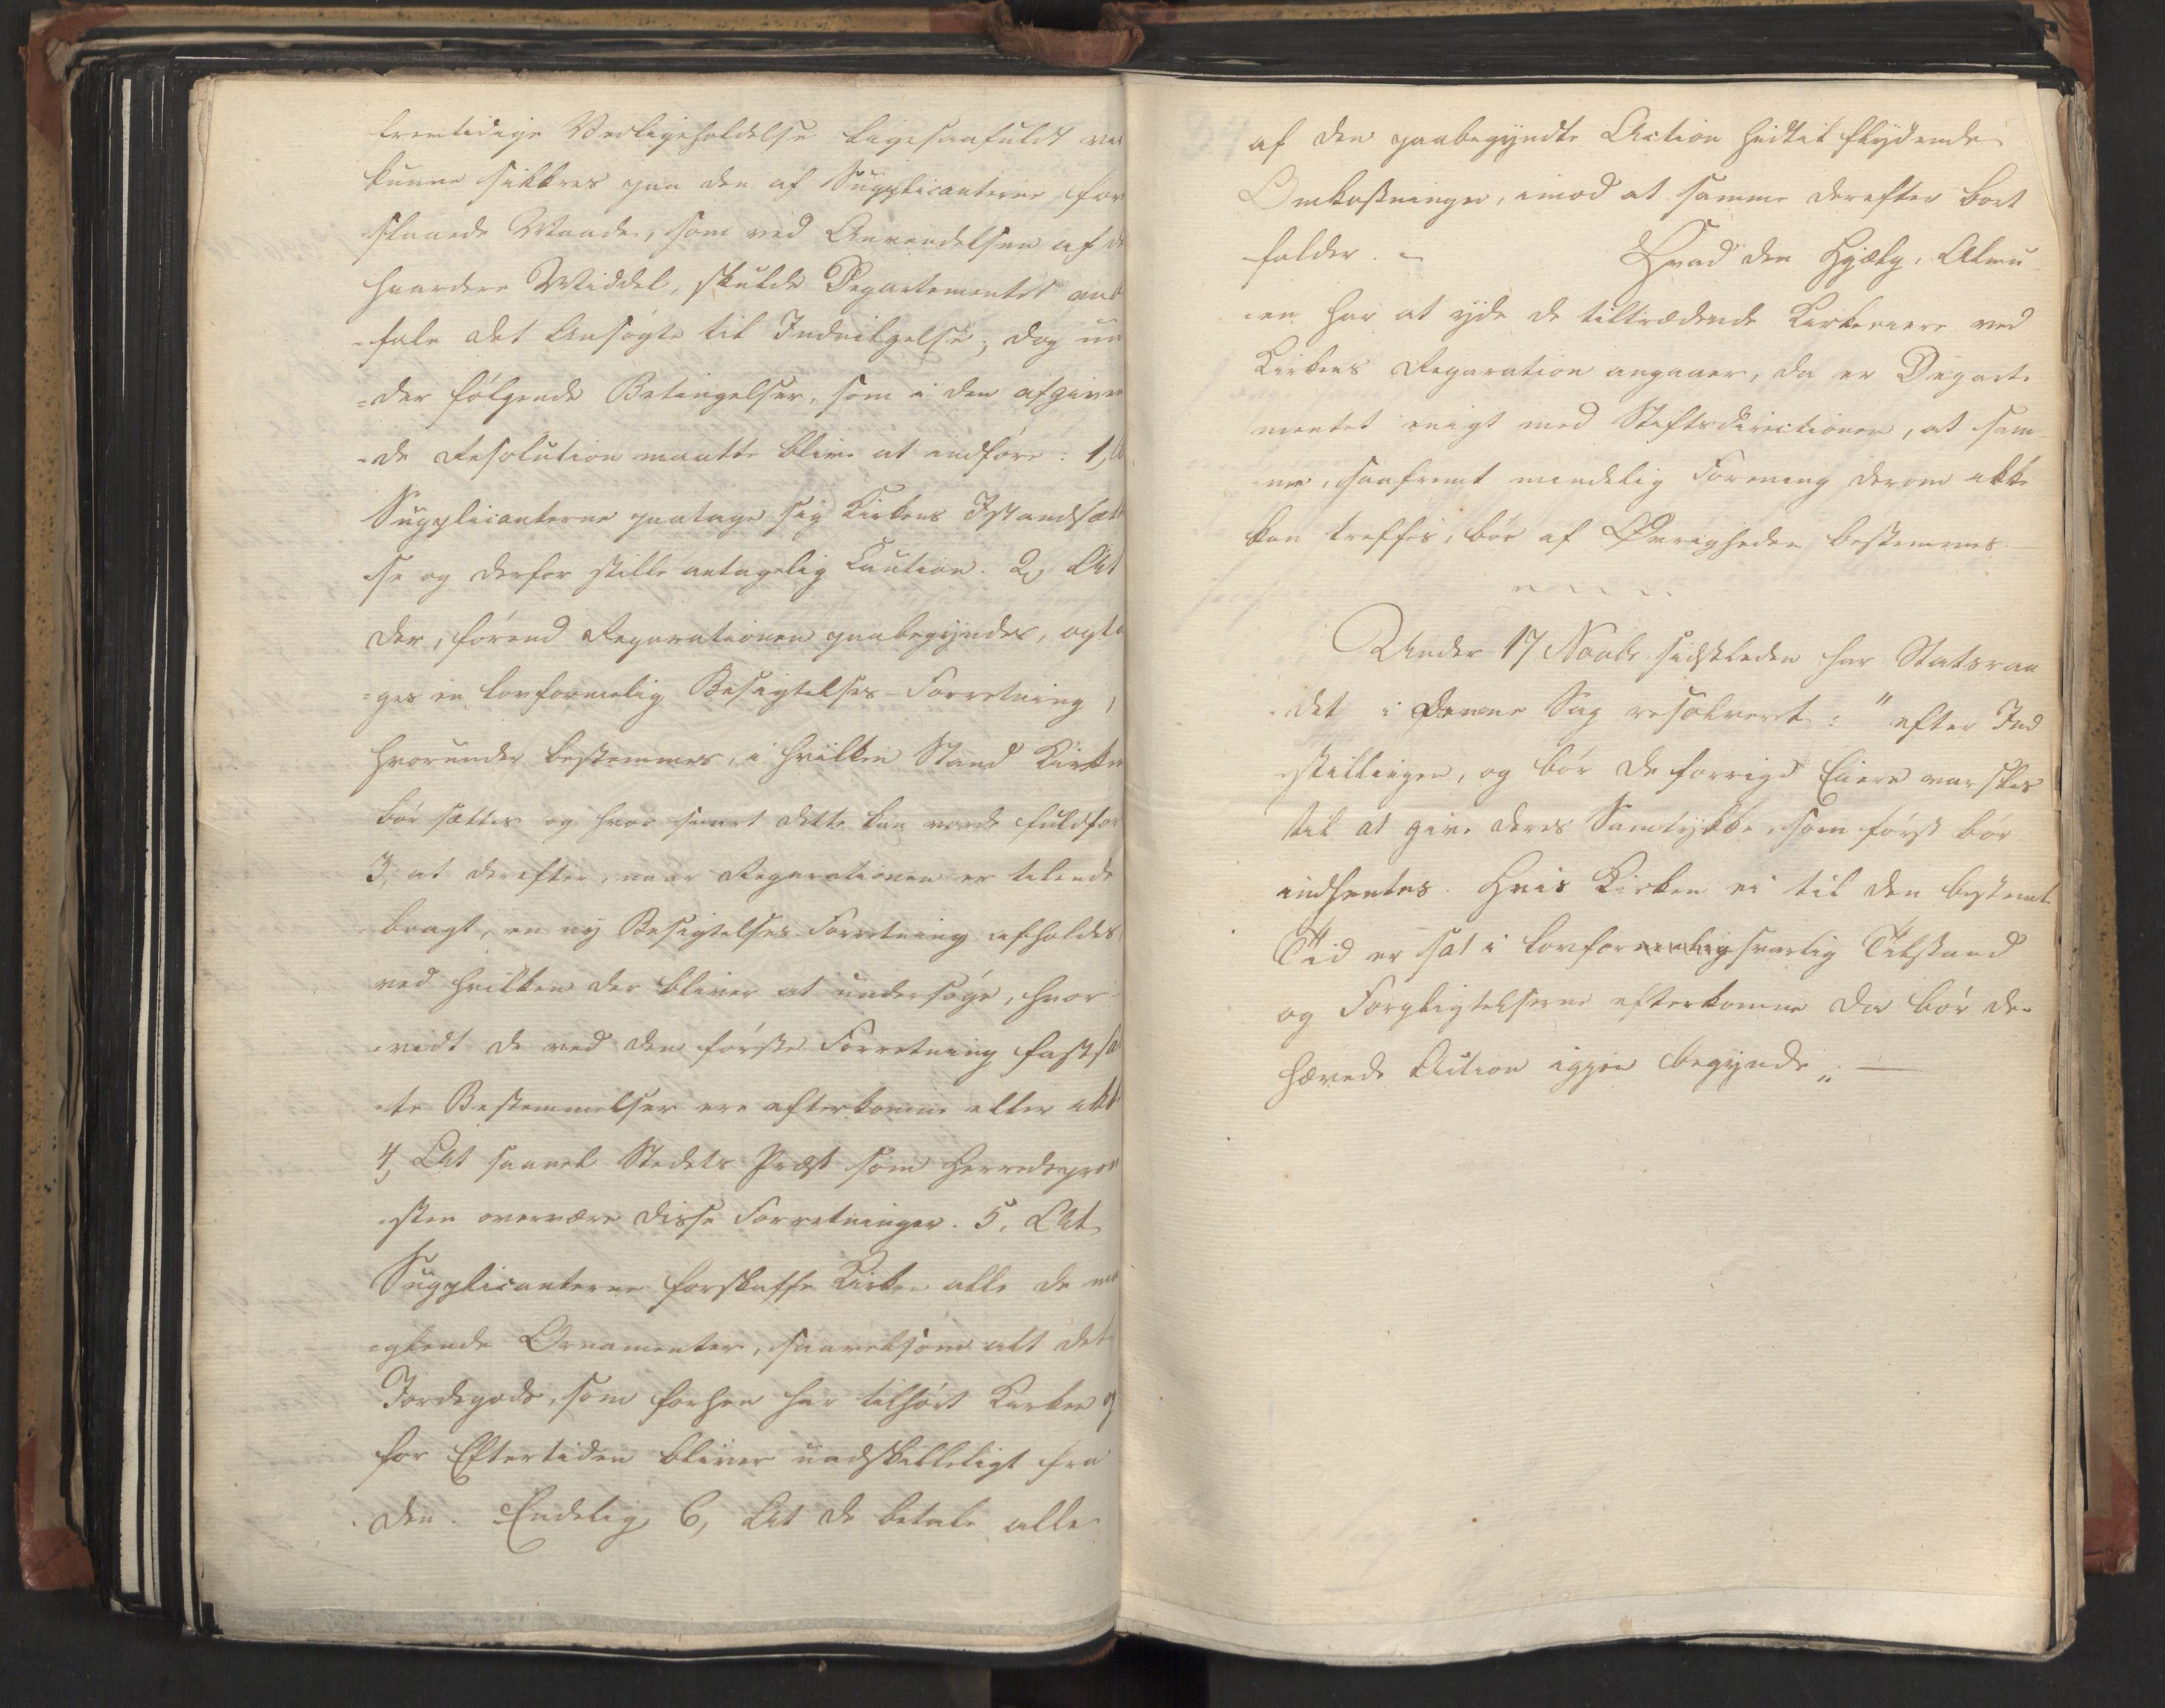 fremtidige Vedligeholdelse ligesaafuldt vel
kunne sikkres paa den af Supplicanterne fore
slaaede Maade, som ved Anvendelsen af de
haardere Middel, skulde Departementet anb
-fale det Ansøgte til Indvilgelse; dog un
-der følgende Betingelser, som i den afgiven
-de Resolution maatte blive at indføre: 1, At
Supplicanterne paatage sig Kirkens Istandsættel
se og derfor stille antagelig Caution. 2, At
der, førend Reparationen paabegyndes, opta
-ges en lovformelig Besigtelses-Forretning,
hvorunder bestemmes, i hvilken Stand Kirken
bør sættes og hvor snart dette kan vorde fuldført
3, at derefter, naar Reparationen er tilende
bragt, en ny Besigtelses-Forretning afholdes,
ved hvilken der bliver at undersøge, hvor-
-vidt de ved den første Forretning fastsat
-te Bestemmelser ere efterkomne eller ikke
4, At saavel Stedets Præst som Herredsprov
-sten overvære disse Forretninger. 5, At
Supplicanterne forskaffe Kirken alle de ma
-glende Ornamenter, saavelsom alt det
Jordegods, som forhen har tilhørt Kirken og
for Eftertiden bliver uadskilleligt fra
den. Endelig 6, At de betale alle
af den paabegyndte Action hidtil flydende
Omkostninger, imod at samme derefter bort
falder. - Hvad den Hjælp, Almu
-en har at yde de tiltrædende Kirkeeiere ved
Kirkens Reparation angaaer, da er Departe
mentet enigt med Stiftsdirectionen, at sam-
me, saafremt mindelig Forening derom ikke
kan treffes, bør af Øvrigheden bestemmes. -
Under 17 Novbr. sidstleden har Statsraa
-det i denne Sag resolveret: "efter Ind
-stillingen, og bør de forrige Eiere varsles
til at give deres Samtykke, som først bør
indhentes. Hvis Kirken ei til den bestemte
Tid er sat i lovforsvarlig Tilstand
og Forpligtelserne efterkomne da bør den
hævede Action igjen begynde„. —